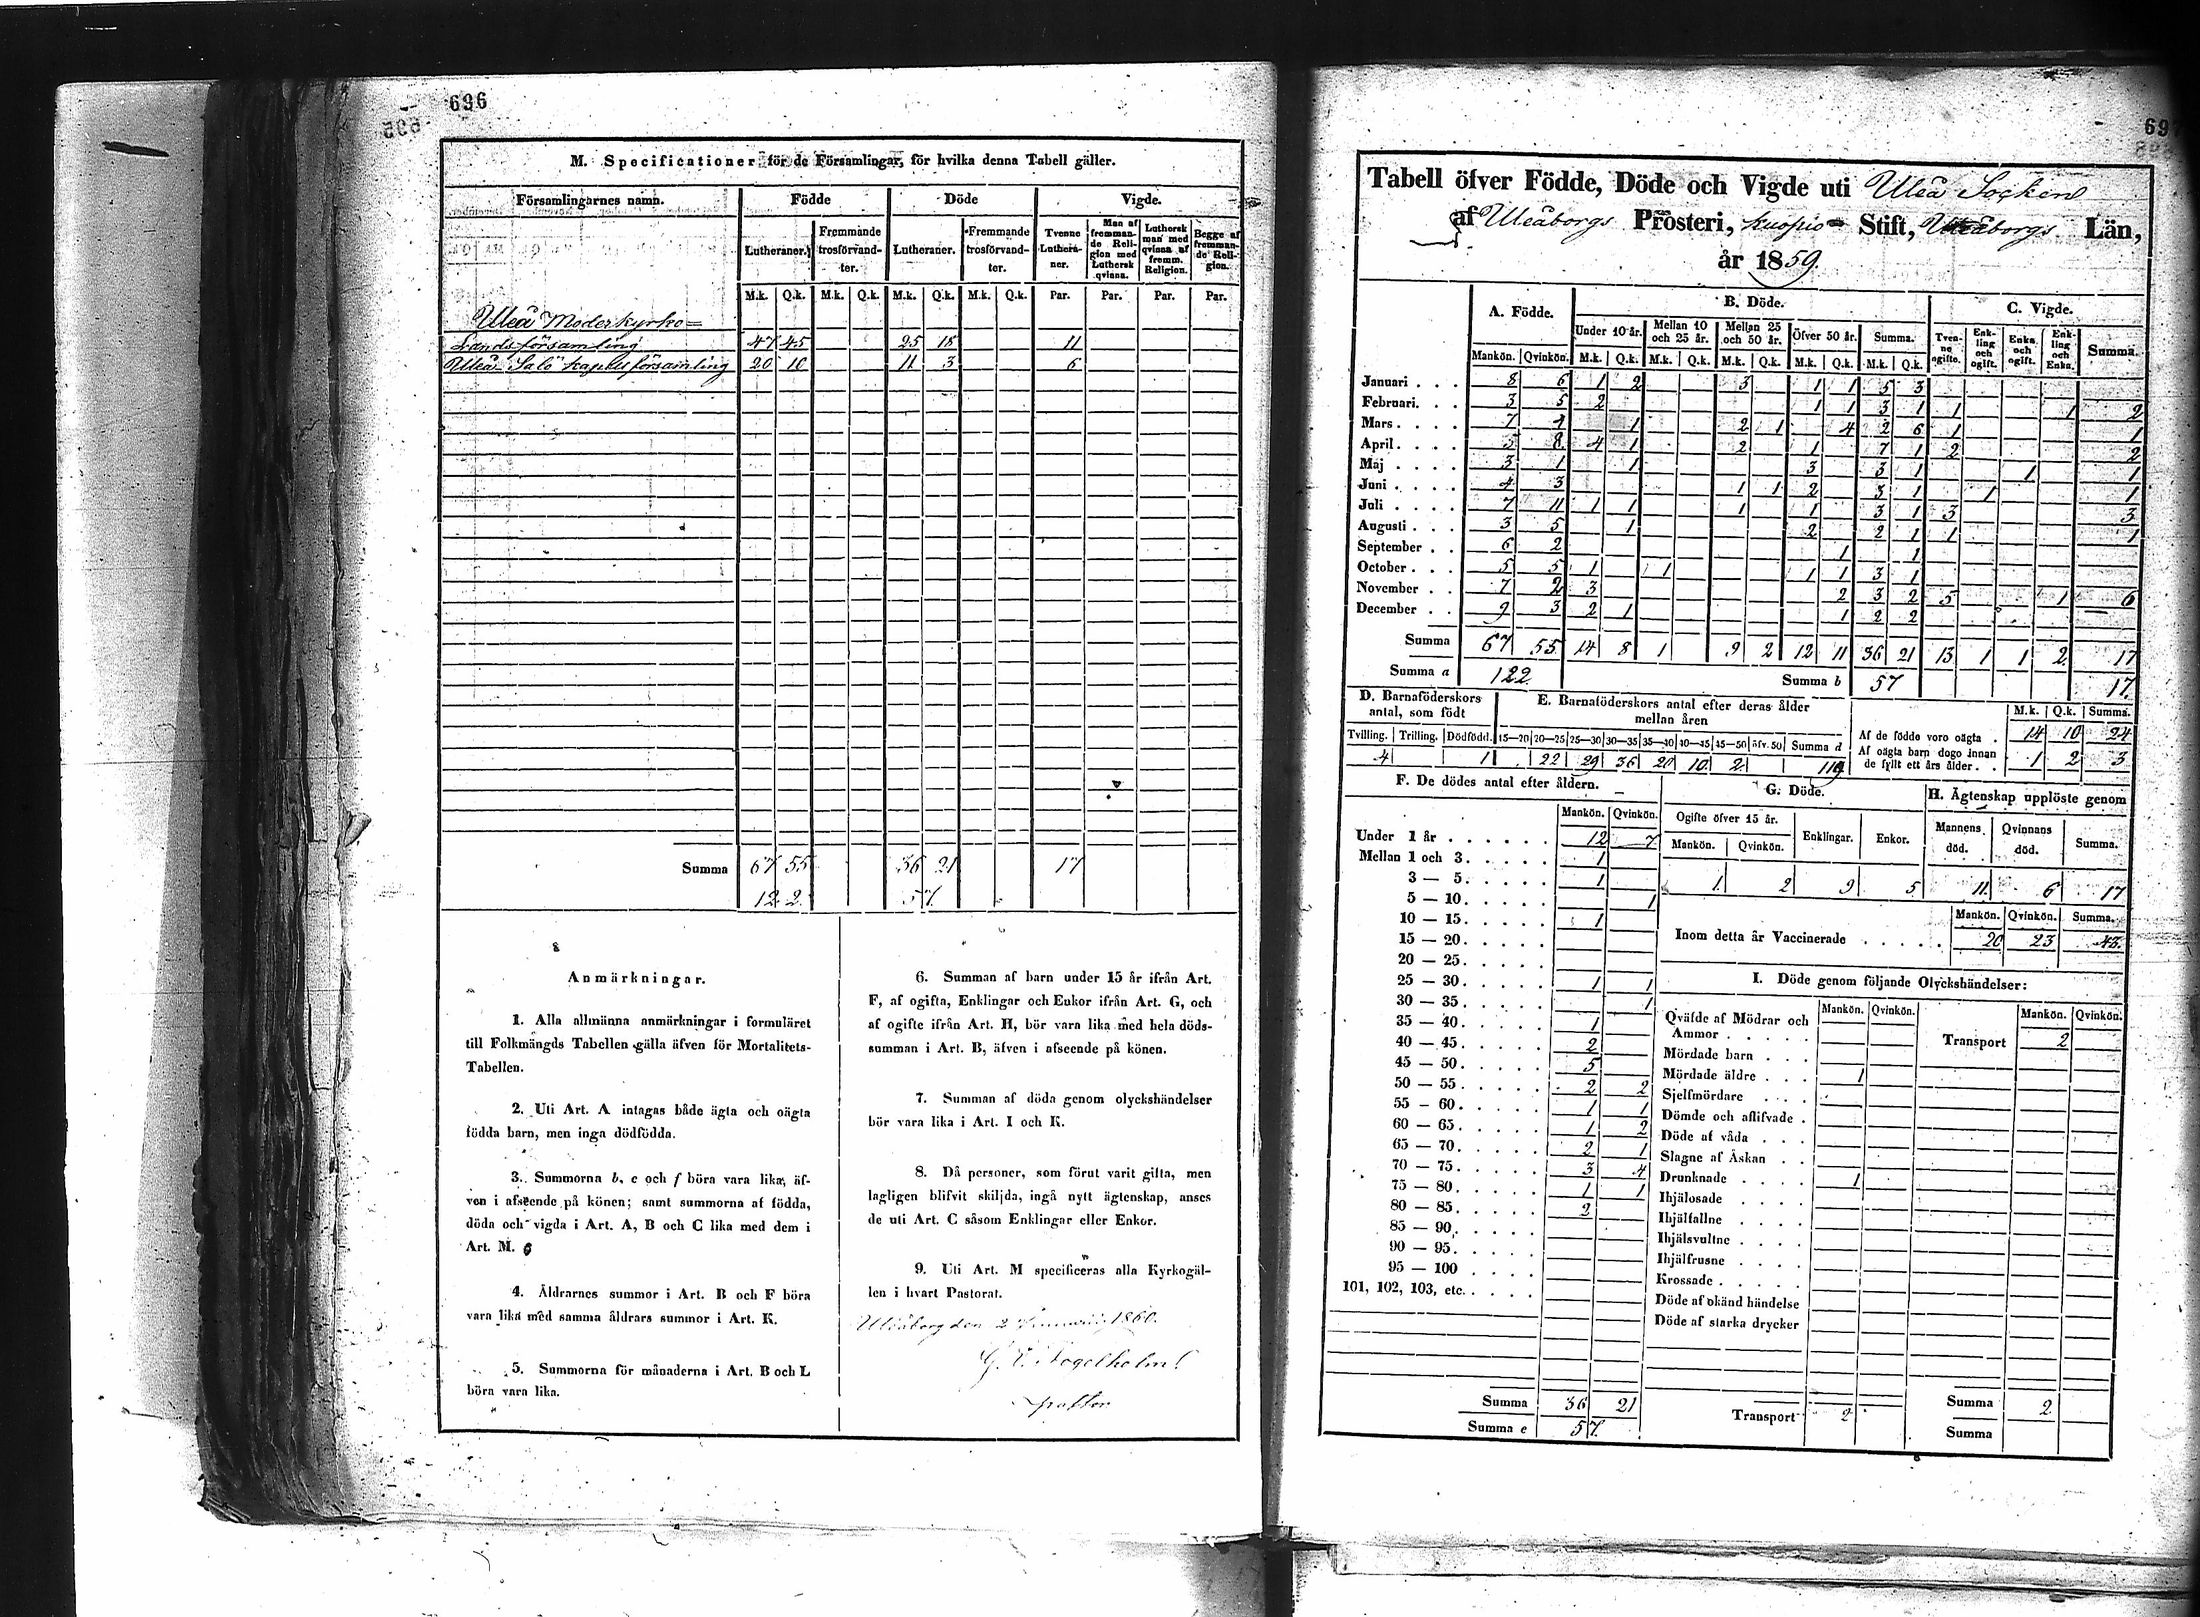 696
M. Specificationer för de Församlingar, för hvilka denna Tabell gäller.
Församlingarnes namn. Födde Döde Vigde.
Lutheraner. Fremmande trosförvandter. Lutheraner. Fremmande trosförvandter. Tvenne Lutheraner. Man af fremmande Religion med Luthersk qvinna. Luthersk man med qvinna af fremm. Religion. Begge af fremmande Religion.
M.k. Q.k. M.k. Q.k. M.k. Q.k. M.k. Q.k. Par. Par. Par. Par.
Uleå Moderkyrko=
Landsförsamling 47 45 25 18 11
Uleå Salo Kapellsförsamling 20 10 11 3 6
Summa 67 55 36 21 17
122. 57.
Anmärkningar.
1. Alla allmänna anmärkningar i formuläret
till Folkmängds Tabellen gälla äfven för Mortalitets-
Tabellen.
2. Uti Art. A intagas både ägta och oägta
födda barn, men inga dödfödda.
3. Summorna b, c och f böra vara lika, äf-
ven i afseende på könen; samt summorna af födda,
döda och vigda i Art. A, B och C lika med dem i
Art. M.
4. Åldrarnes summor i Art. B och F böra
vara lika med samma åldrars summor i Art. K.
5. Summorna för månaderna i Art. B och L
böra vara lika.
6. Summan af barn under 15 år ifrån Art.
F, af ogifta, Enklingar och Enkor ifrån Art. G, och
af ogifte ifrån Art. H, bör vara lika med hela döds-
summan i Art. B, äfven i afseende på könen.
7. Summan af döda genom olyckshändelser
bör vara lika i Art. I och K.
8. Då personer, som förut varit gifta, men
lagligen blifvit skiljda, ingå nytt ägtenskap, anses
de uti Art. C såsom Enklingar eller Enkor.
9. Uti Art. M specificeras alla Kyrkogäl-
len i hvart Pastorat.
Uleåborg den 2 Januarii 1860.
Fogelholm
pastor
697
Tabell öfver Födde, Döde och Vigde uti Uleå Socken
af Uleåborgs Prosteri, Kuopio Stift, Uleåborgs Län,
år 1859.
A. Födde. B. Döde. C. Vigde.
Under 10 år. Mellan 10 och 25 år. Mellan 25 och 50 år. Öfver 50 år. Summa. Tvenne ogifte. Enkling och ogift. Enka och ogift. Enkling och Enka. Summa.
Mankön. Qvinkön. M.k. Q.k. M.k. Q.k. M.k. Q.k. M.k. Q.k. M.k. Q.k.
Januari . . . 8 6 1 2 3 1 1 5 3
Februari. . . 3 5 2 1 1 3 1 1 1 2
Mars . . . . 7 4 1 2 1 4 2 6 1 1
April . . . . 5 8 4 1 2 1 7 1 2 2
Maj . . . . 3 1 1 3 3 1 1 1
Juni . . . . 4 3 1 1 2 3 1 1 1
Juli . . . . 7 11 1 1 1 1 3 1 3 3
Augusti . . . 3 5 1 2 2 1 1 1
September . . 6 2 1 1
October . . . 5 5 1 1 1 1 3 1
November . . 7 2 3 2 3 2 5 1 6
December . . 9 3 2 1 1 2 2
Summa 67 55 14 8 1 9 2 12 11 36 21 13 1 1 2 17
Summa a 122. Summa b 57 17.
D. Barnaföderskors antal, som födt
E. Barnaföderskors antal efter deras ålder mellan åren
Tvilling. Trilling. Dödfödd. 15—20 20—25 25—30 30—35 35—40 40—45 45—50 öfv. 50 Summa d
4 1 22 29 36 20 10 2 119
M.k. Q.k. Summa.
Af de födde voro oägta . 14 10 24
Af oägta barn dogo innan
de fyllt ett års ålder . . 1 2 3
F. De dödes antal efter åldern.
Mankön. Qvinkön.
Under 1 år . . . . . . 12 7
Mellan 1 och 3 . . . . . 1
3 — 5. . . . . 1
5 — 10. . . . . 1
10 — 15. . . . . 1
15 — 20. . . . .
20 — 25. . . . .
25 — 30. . . . . 1 1
30 — 35. . . . . 1
35 — 40. . . . . 1
40 — 45. . . . . 2
45 — 50. . . . . 5
50 — 55. . . . . 2 2
55 — 60. . . . . 1 1
60 — 65. . . . . 1 2
65 — 70. . . . . 2 1
70 — 75. . . . . 3 4
75 — 80. . . . . 1 1
80 — 85. . . . . 2
85 — 90. . . . .
90 — 95. . . . .
95 — 100 . . . .
101, 102, 103, etc. . . . .
Summa 36 21
Summa e 57.
G. Döde.
Ogifte öfver 15 år. Enklingar. Enkor.
Mankön. Qvinkön.
1. 2 9 5
H. Ägtenskap upplöste genom
Mannens död. Qvinnans död. Summa.
11. 6 17
Mankön. Qvinkön. Summa.
Inom detta år Vaccinerade . . . . . 20 23 43.
I. Döde genom följande Olyckshändelser:
Mankön. Qvinkön. Mankön. Qvinkön.
Qväfde af Mödrar och
Ammor . . . . . Transport 2
Mördade barn . . .
Mördade äldre . . . 1
Sjelfmördare . . .
Dömde och aflifvade .
Döde af våda . . .
Slagne af Åskan . .
Drunknade . . . . 1
Ihjälosade . . . .
Ihjälfallne . . . .
Ihjälsvultne . . . .
Ihjälfrusne . . . .
Krossade . . . . .
Döde af okänd händelse
Döde af starka drycker
Transport 2
Summa 2
Summa